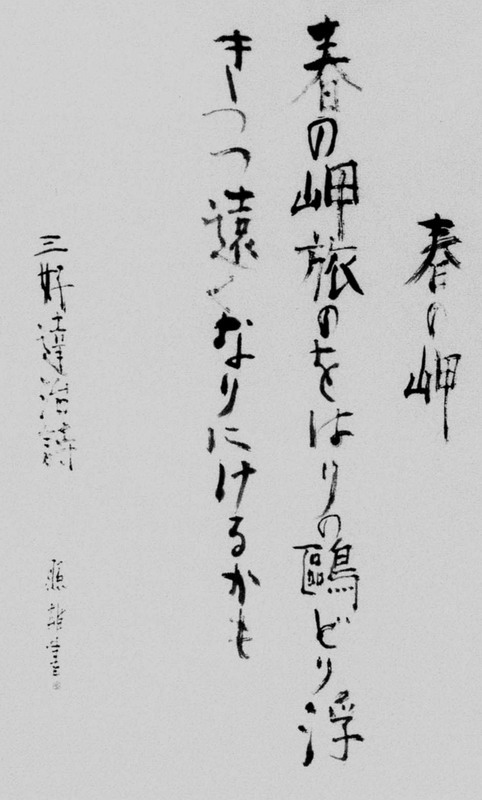 春の岬
春の岬旅のをはりの鷗どり浮
きつつ遠くなりにけるかも
三好達治詩